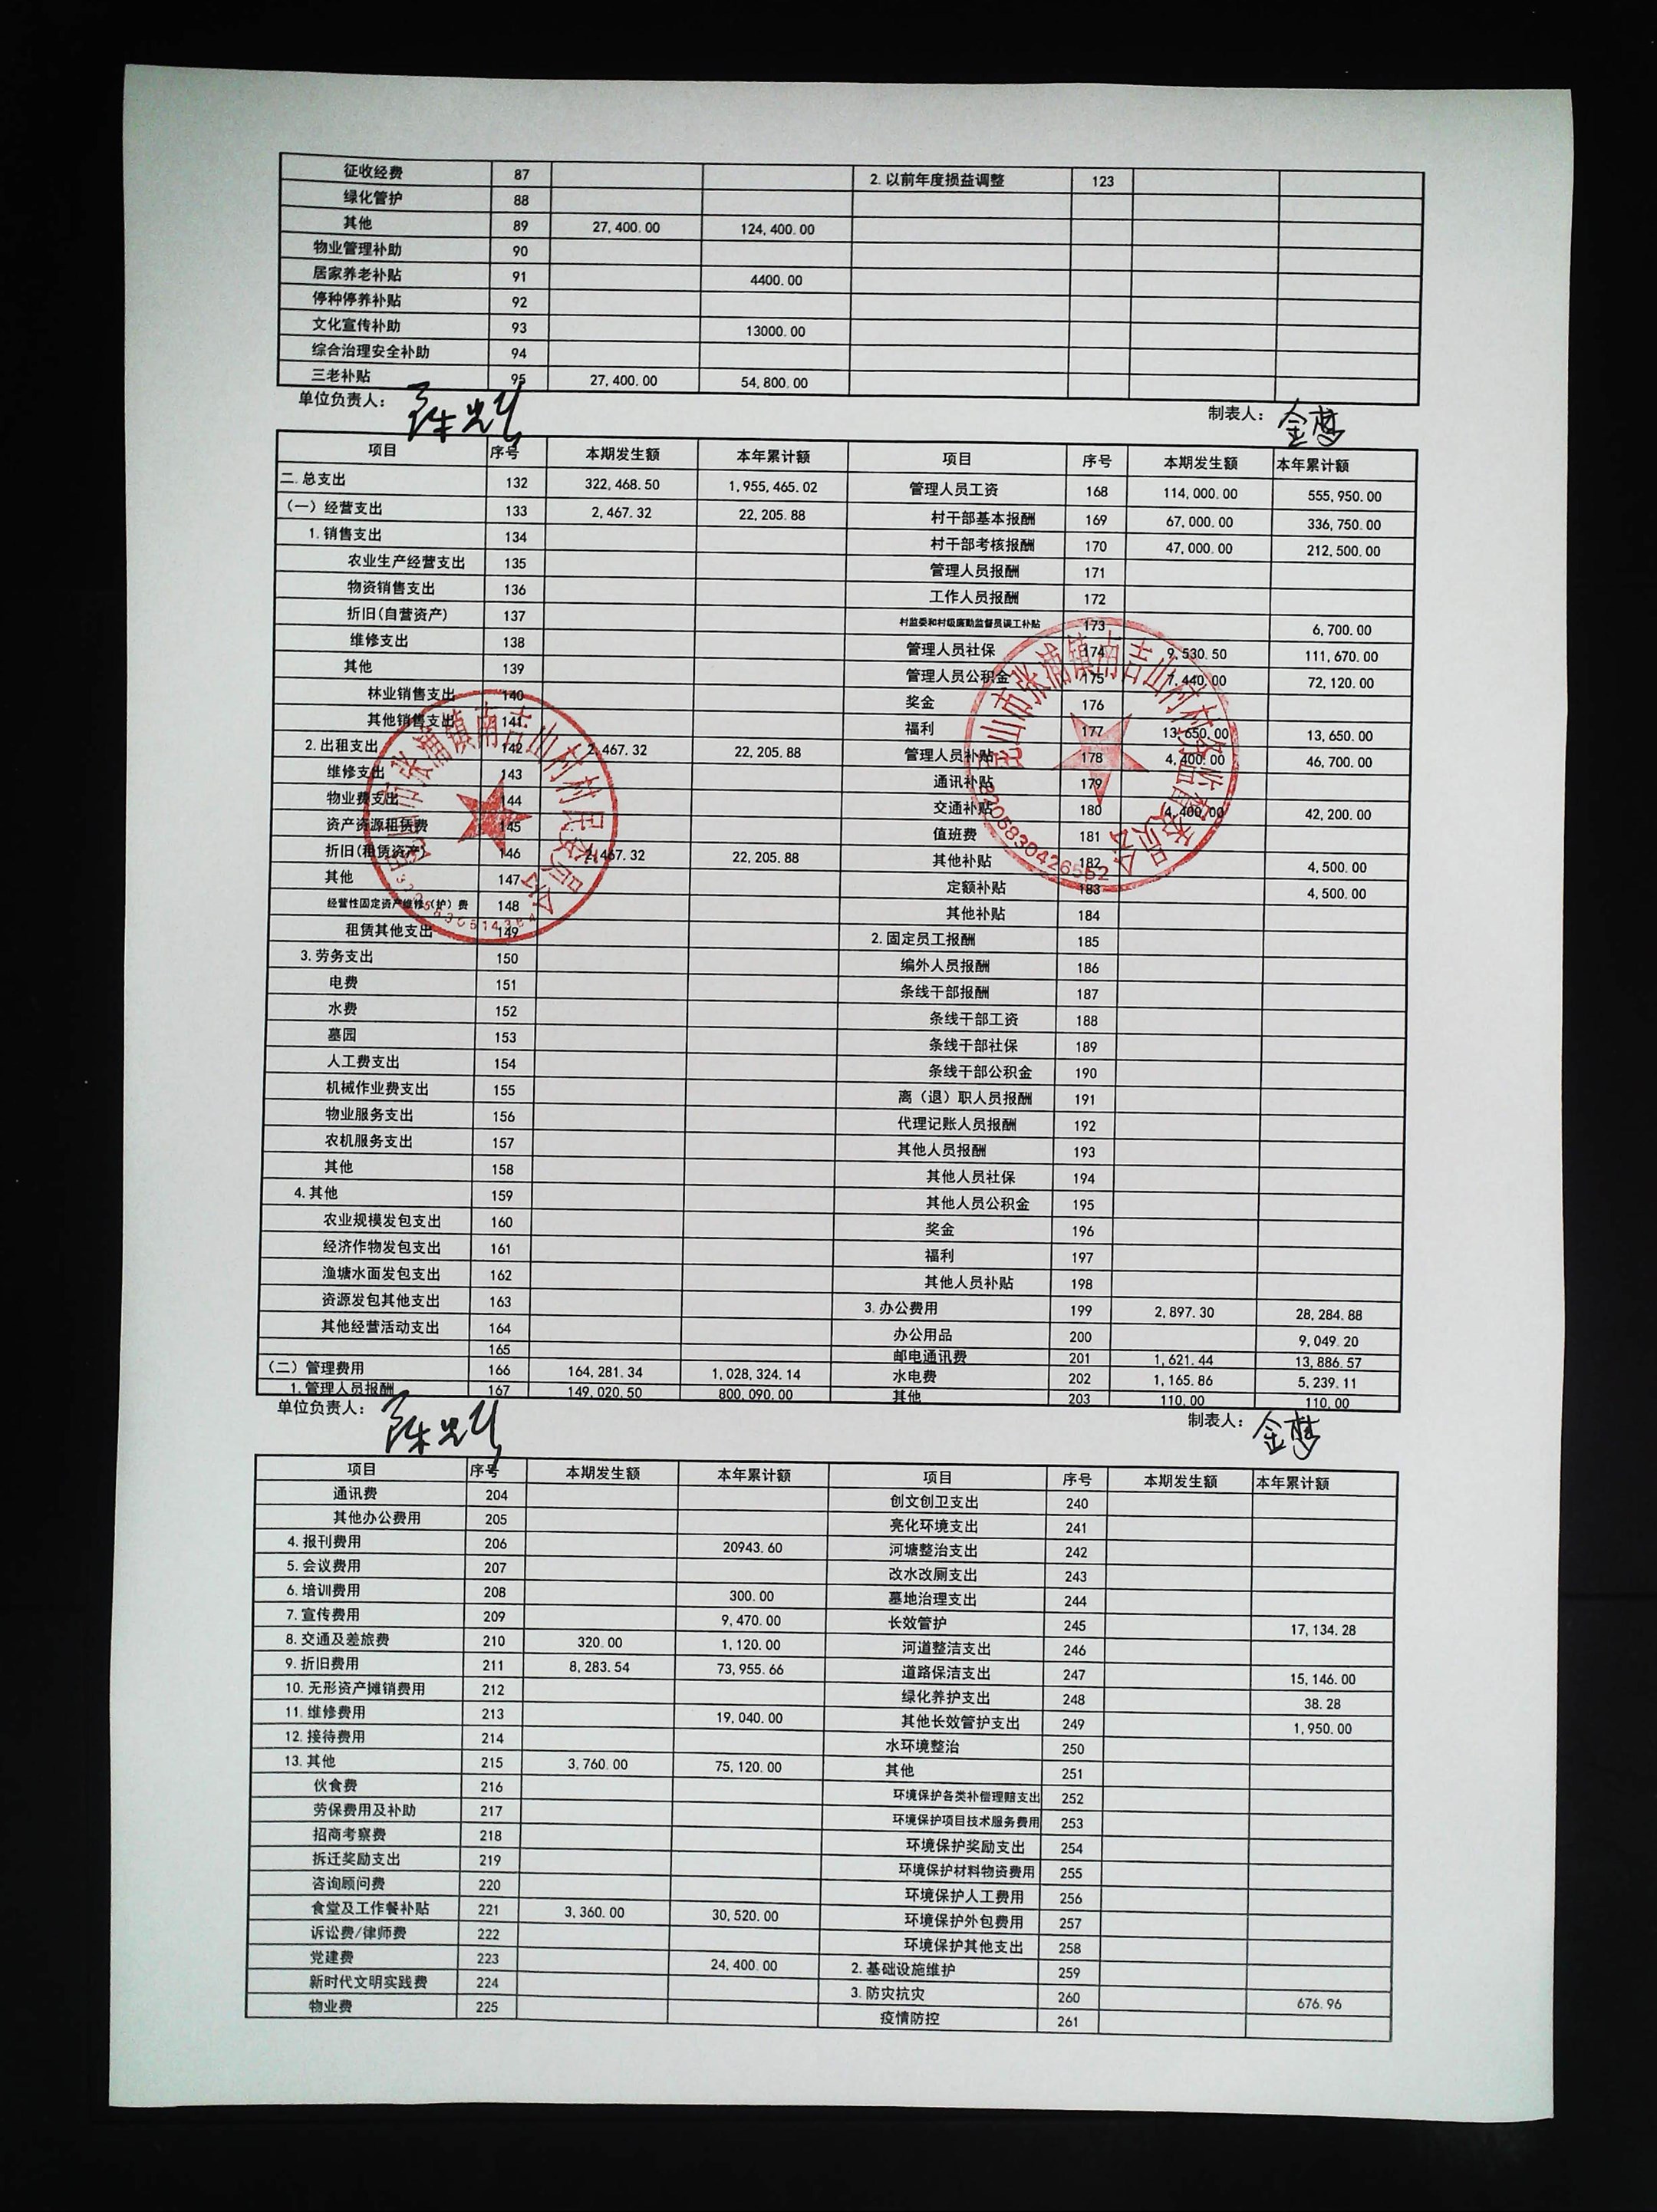 征收经费 87 2.以前年度损益调整 123
绿化管护 88
其他 89 27,400.00 124,400.00
物业管理补助 90
居家养老补贴 91 4400.00
停种停养补贴 92
文化宣传补助 93 13000.00
综合治理安全补助 94
三老补贴 95 27,400.00 54,800.00
单位负责人： 制表人：
项目 序号 本期发生额 本年累计额 项目 序号 本期发生额 本年累计额
二.总支出 132 322,468.50 1,955,465.02 管理人员工资 168 114,000.00 555,950.00
（一）经营支出 133 2,467.32 22,205.88 村干部基本报酬 169 67,000.00 336,750.00
1.销售支出 134 村干部考核报酬 170 47,000.00 212,500.00
农业生产经营支出 135 管理人员报酬 171
物资销售支出 136 工作人员报酬 172
折旧(自营资产) 137 村监委和村级廉勤监督员误工补贴 173 6,700.00
维修支出 138 管理人员社保 174 9,530.50 111,670.00
其他 139 管理人员公积金 175 7,440.00 72,120.00
林业销售支出 140 奖金 176
其他销售支出 141 福利 177 13,650.00 13,650.00
2.出租支出 142 2,467.32 22,205.88 管理人员补贴 178 4,400.00 46,700.00
维修支出 143 通讯补贴 179
物业费支出 144 交通补贴 180 4,400.00 42,200.00
资产资源租赁费 145 值班费 181
折旧(租赁资产) 146 2,467.32 22,205.88 其他补贴 182 4,500.00
其他 147 定额补贴 183 4,500.00
经营性固定资产维修（护）费 148 其他补贴 184
租赁其他支出 149 2.固定员工报酬 185
3.劳务支出 150 编外人员报酬 186
电费 151 条线干部报酬 187
水费 152 条线干部工资 188
墓园 153 条线干部社保 189
人工费支出 154 条线干部公积金 190
机械作业费支出 155 离（退）职人员报酬 191
物业服务支出 156 代理记账人员报酬 192
农机服务支出 157 其他人员报酬 193
其他 158 其他人员社保 194
4.其他 159 其他人员公积金 195
农业规模发包支出 160 奖金 196
经济作物发包支出 161 福利 197
渔塘水面发包支出 162 其他人员补贴 198
资源发包其他支出 163 3.办公费用 199 2,897.30 28,284.88
其他经营活动支出 164 办公用品 200 9,049.20
165 邮电通讯费 201 1,621.44 13,886.57
（二）管理费用 166 164,281.34 1,028,324.14 水电费 202 1,165.86 5,239.11
1.管理人员报酬 167 149,020.50 800,090.00 其他 203 110.00 110.00
单位负责人： 制表人：
项目 序号 本期发生额 本年累计额 项目 序号 本期发生额 本年累计额
通讯费 204 创文创卫支出 240
其他办公费用 205 亮化环境支出 241
4.报刊费用 206 20943.60 河塘整治支出 242
5.会议费用 207 改水改厕支出 243
6.培训费用 208 300.00 墓地治理支出 244
7.宣传费用 209 9,470.00 长效管护 245 17,134.28
8.交通及差旅费 210 320.00 1,120.00 河道整洁支出 246
9.折旧费用 211 8,283.54 73,955.66 道路保洁支出 247 15,146.00
10.无形资产摊销费用 212 绿化养护支出 248 38.28
11.维修费用 213 19,040.00 其他长效管护支出 249 1,950.00
12.接待费用 214 水环境整治 250
13.其他 215 3,760.00 75,120.00 其他 251
伙食费 216 环境保护各类补偿理赔支出 252
劳保费用及补助 217 环境保护项目技术服务费用 253
招商考察费 218 环境保护奖励支出 254
拆迁奖励支出 219 环境保护材料物资费用 255
咨询顾问费 220 环境保护人工费用 256
食堂及工作餐补贴 221 3,360.00 30,520.00 环境保护外包费用 257
诉讼费/律师费 222 环境保护其他支出 258
党建费 223 24,400.00 2.基础设施维护 259
新时代文明实践费 224 3.防灾抗灾 260 676.96
物业费 225 疫情防控 261